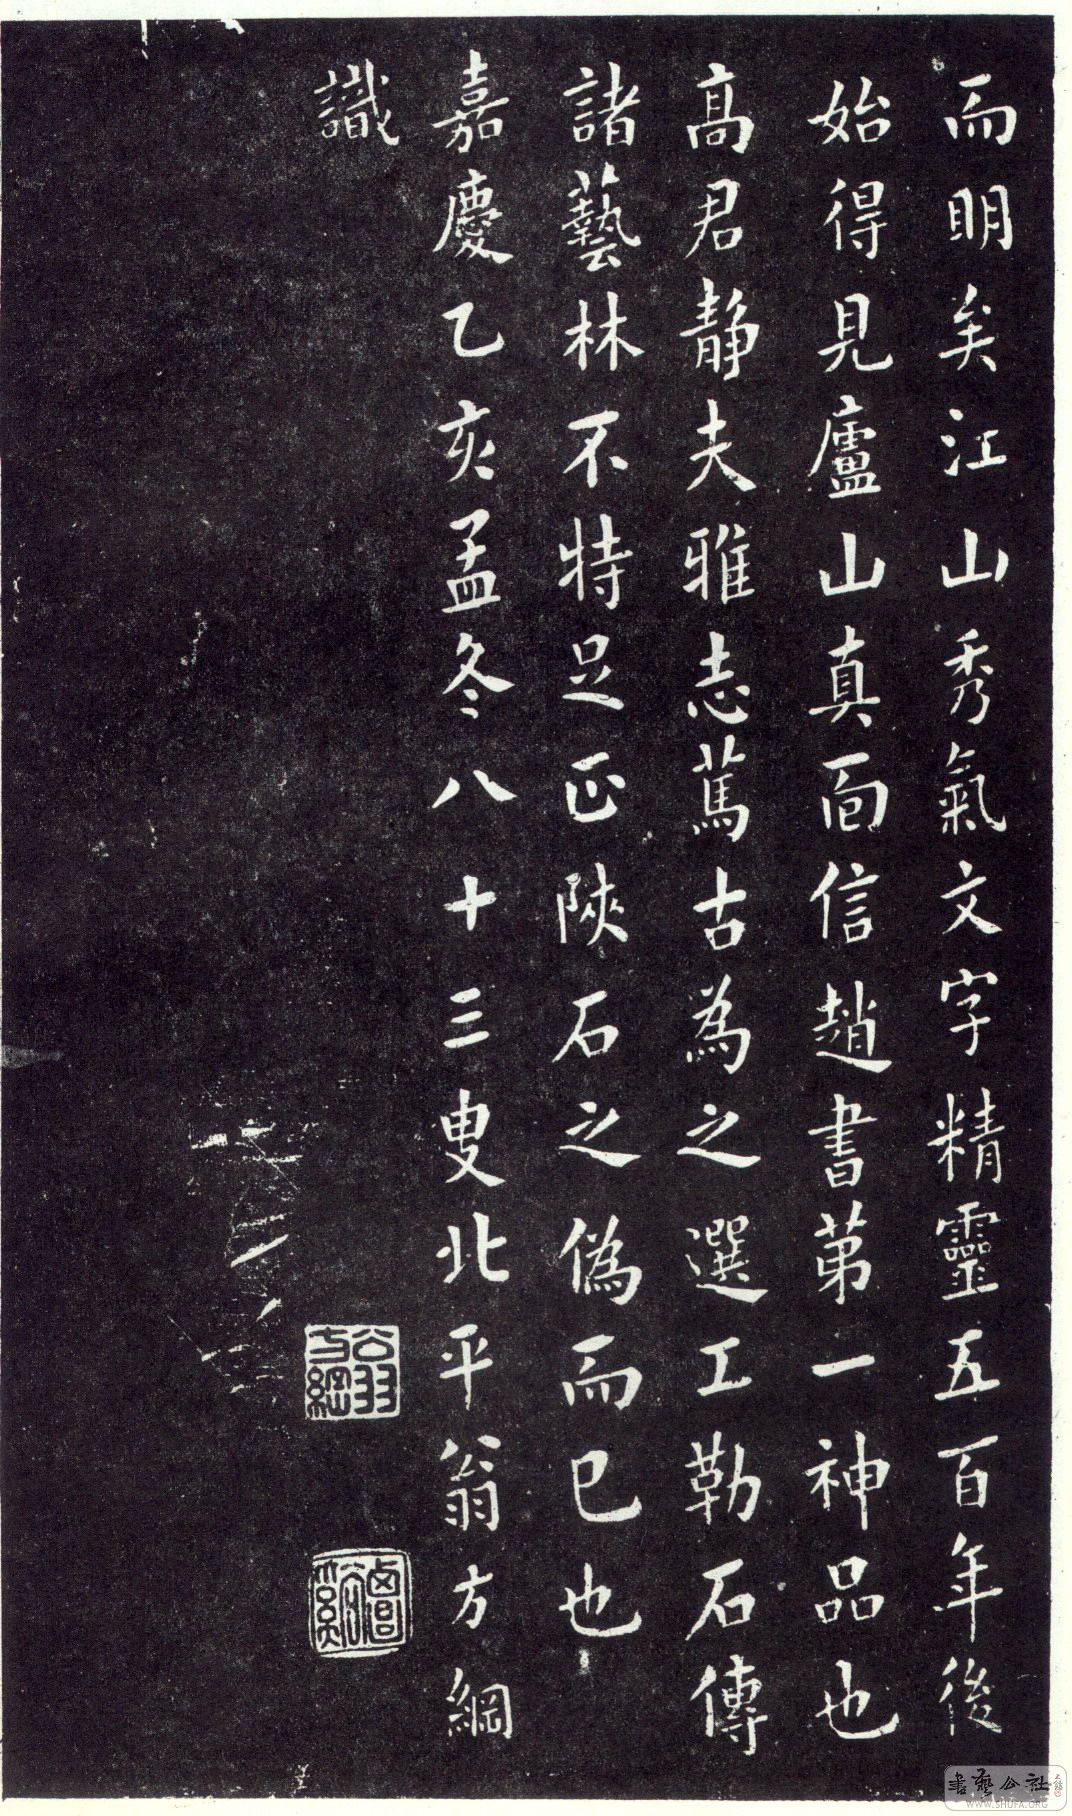 而明矣江山秀氣文字精靈五百年後
始得見廬山真面信趙書第一神品也
髙君靜夫雅志篤古為之選工勒石傳
諸藝林不特足正陝石之偽而已也
嘉慶乙亥孟冬八十三叟北平翁方綱
識
翁方綱
書藝公社
WWW.SHUFA.ORG